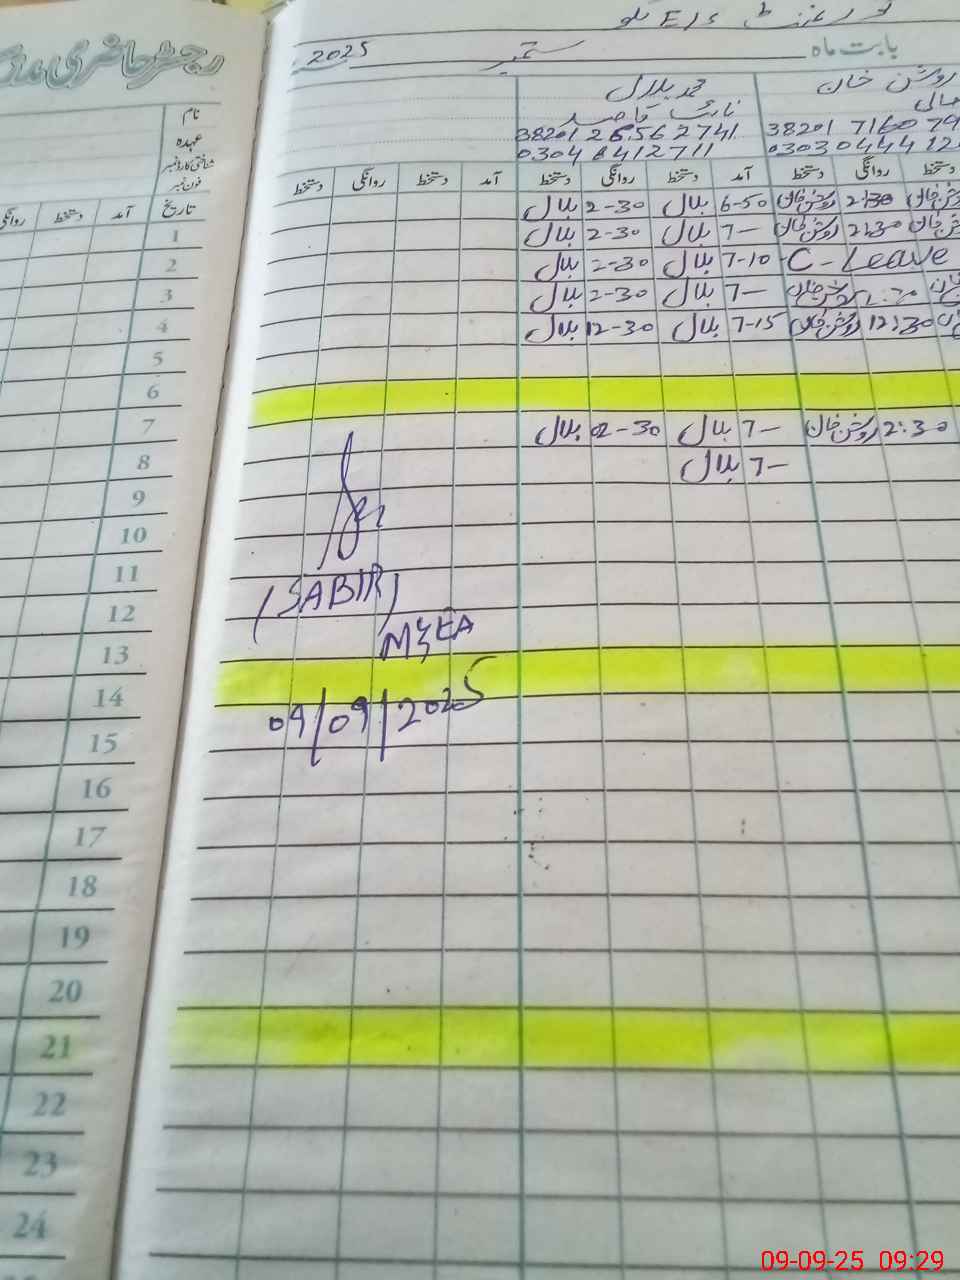 رجسٹر حاضری
گورنمنٹ E/S
بابت ماہ ستمبر 2025
نام
عہدہ
شناختی کارڈ نمبر
فون نمبر
روشن خان
مالی
38201 7160 79
0303 0444 12
محمد بلال
نائب قاصد
38201 2656274 1
0304 8412711
تاریخ آمد دستخط روانگی
دستخط روانگی دستخط آمد دستخط روانگی دستخط آمد دستخط روانگی دستخط
روشن خان 2:30 روشن خان 6-50 بلال 2-30 بلال
روشن خان 2:30 روشن خان 7- بلال 2-30 بلال
C-Leave 7-10 بلال 2-30 بلال
روشن خان 7- بلال 2-30 بلال
12:30 روشن خان 7-15 بلال 12-30 بلال
2:30 روشن خان 7- بلال 02-30 بلال
7- بلال
1
2
3
4
5
6
7
8
9
10
11
12
13
14
15
16
17
18
19
20
21
22
23
24
(SABIR)
M&EA
09/09/2025
09-09-25 09:29